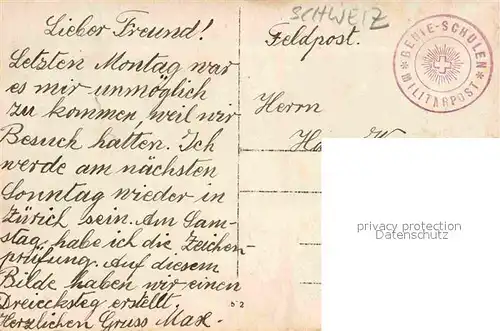 Lieber Freund!
Letzten Montag war
es mir unmöglich
zu kommen, weil wir
Besuch hatten. Ich
werde am nächsten
Sonntag wieder in
Zürich sein. Am Sam-
stag habe ich die Zeichen
prüfung. Auf diesem
Bilde haben wir einen
Dreiecksteg erstellt.
Herzlichen Gruss Max.
SCHWEIZ
Feldpost.
GENIE-SCHULEN
MILITÄRPOST
Herrn
52
privacy protection
Datenschutz